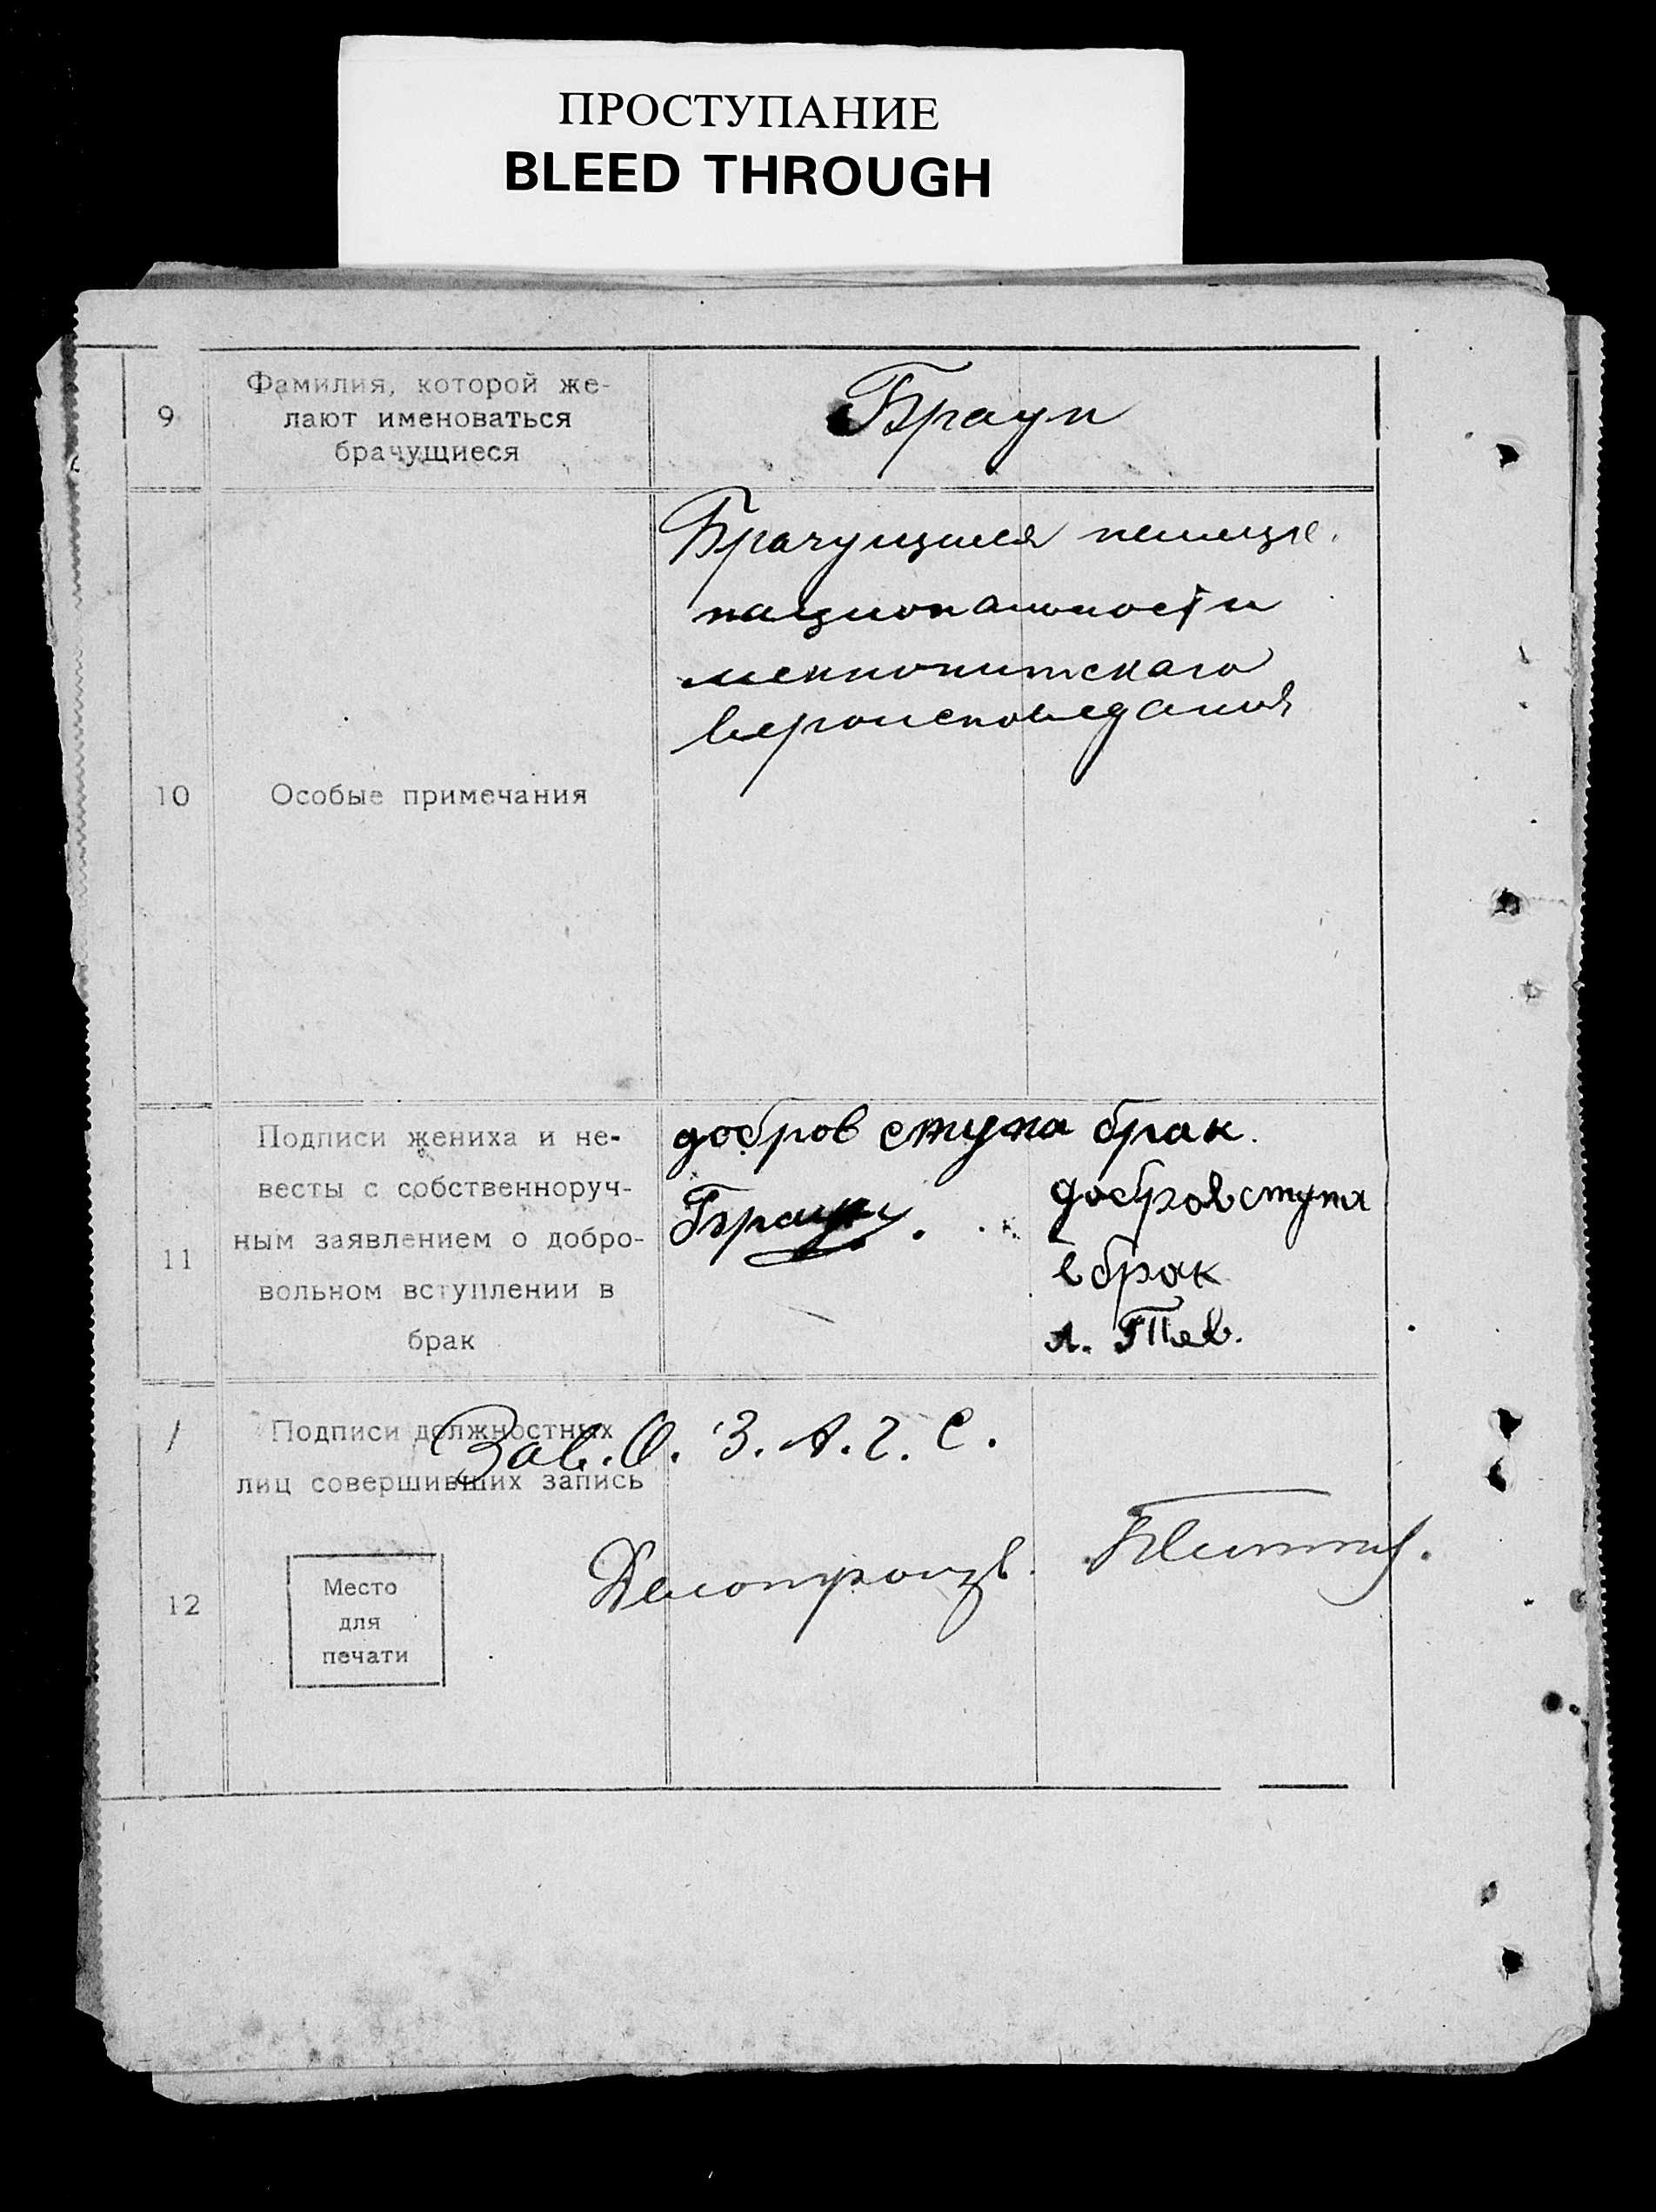 ПРОСТУПАНИЕ
BLEED THROUGH
9
Фамилия, которой же-
лают именоваться
брачущиеся
Браун
10
Особые примечания
Брачущиеся немецк.
национальности
меннонитскаго
вероисповедания
11
Подписи жениха и не-
весты с собственноруч-
ным заявлением о добро-
вольном вступлении в
брак
добров ступа брак.
Браун
добров ступа
в брак
12
Подписи должностных
лиц совершивших запись
Зав. О. З. А. Г. С.
Делопроизв.
Место
для
печати